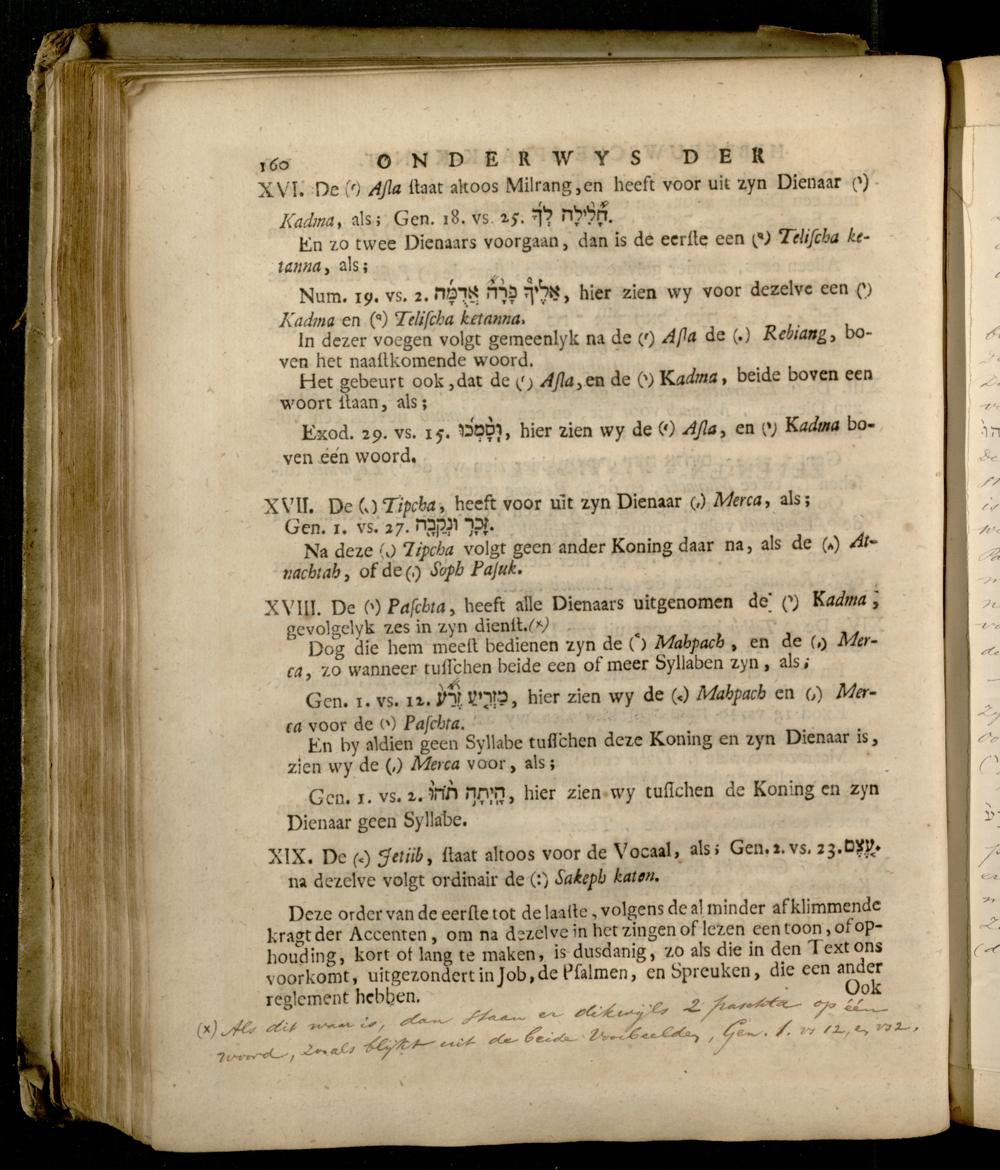 160 ONDERWYS DER
XVI. De (֜) Aſla ſtaat altoos Milrang, en heeft voor uit zyn Dienaar (֨)
Kadma, als; Gen. 18. vs. 25. חָלִ֨ילָה לְּךָ֜.
En zo twee Dienaars voorgaan, dan is de eerſte een (֩) Teliſcha ke-
tanna, als;
Num. 19. vs. 2. אֵלֶ֩יךָ֩ פָרָ֨ה אֲדֻמָּ֜ה, hier zien wy voor dezelve een (֨)
Kadma en (֩) Teliſcha ketanna.
In dezer voegen volgt gemeenlyk na de (֜) Aſla de (.) Rebiang, bo-
ven het naaſtkomende woord.
Het gebeurt ook, dat de (֜) Aſla, en de (֨) Kadma, beide boven een
woort ſtaan, als;
Exod. 29. vs. 15. וְסָ֨מְכ֜וּ, hier zien wy de (֜) Aſla, en (֨) Kadma bo-
ven één woord.
XVII. De (֖) Tipcha, heeft voor uit zyn Dienaar (֥) Merca, als;
Gen. 1. vs. 27. זָכָ֥ר וּנְקֵבָ֖ה.
Na deze (֖) Tipcha volgt geen ander Koning daar na, als de (֑) At-
nachtah, of de (ֽ) Soph Paſuk.
XVIII. De (֙) Paſchta, heeft alle Dienaars uitgenomen de (֨) Kadma;
gevolgelyk zes in zyn dienſt.(×)
Dog die hem meeſt bedienen zyn de (֤) Mahpach, en de (֥) Mer-
ca, zo wanneer tuſſchen beide een of meer Syllaben zyn, als;
Gen. 1. vs. 12. מַזְרִ֤יעַ זֶ֙רַע֙, hier zien wy de (֤) Mahpach en (֥) Mer-
ca voor de (֙) Paſchta.
En by aldien geen Syllabe tuſſchen deze Koning en zyn Dienaar is,
zien wy de (֥) Merca voor, als;
Gen. 1. vs. 2. הָיְתָ֥ה תֹ֙הוּ֙, hier zien wy tuſſchen de Koning en zyn
Dienaar geen Syllabe.
XIX. De (֚) Jetiib, ſtaat altoos voor de Vocaal, als; Gen. 2. vs. 23. עֶ֚צֶם.
na dezelve volgt ordinair de (:) Sakeph katon.
Deze order van de eerſte tot de laaſte, volgens de al minder afklimmende
kragt der Accenten, om na dezelve in het zingen of lezen een toon, of op-
houding, kort of lang te maken, is dusdanig, zo als die in den Text ons
voorkomt, uitgezondert in Job, de Pſalmen, en Spreuken, die een ander
reglement hebben.
Ook
(x) Als dit waar is, dan staan er dikwijls 2 paschta op één
woord, zoals blijkt uit de beide Voorbeelden, Gen. 1. vs 12, en vs 2.